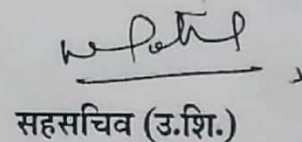 सहसचिव (उ.शि.)